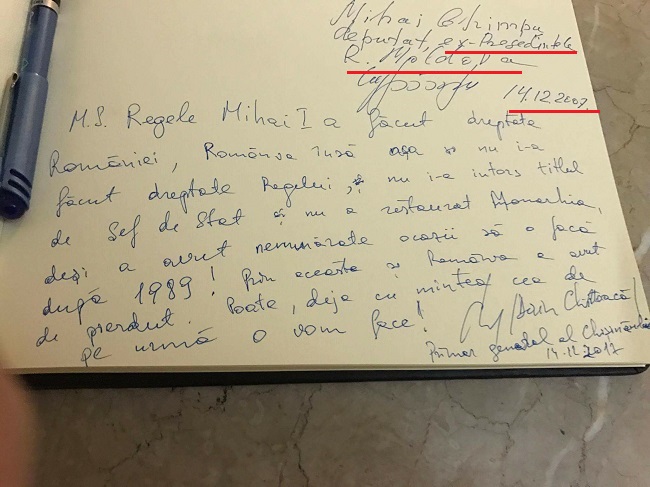 Mihai Ghimpu
deputat, ex-Președintele
R. Moldova
14.12.2007
M.S. Regele Mihai I a făcut dreptate
României, România însă așa și nu i-a
făcut dreptate Regelui, și nu i-a întors titlul
de Șef de Stat și nu a restaurat Monarhia,
deși a avut nenumărate ocazii să o facă
după 1989! Prin aceasta și România a avut
de pierdut. Poate, deja cu mintea cea de
pe urmă o vom face!
Dorin Chirtoacă
Primar general al Chișinăului
14.12.2017